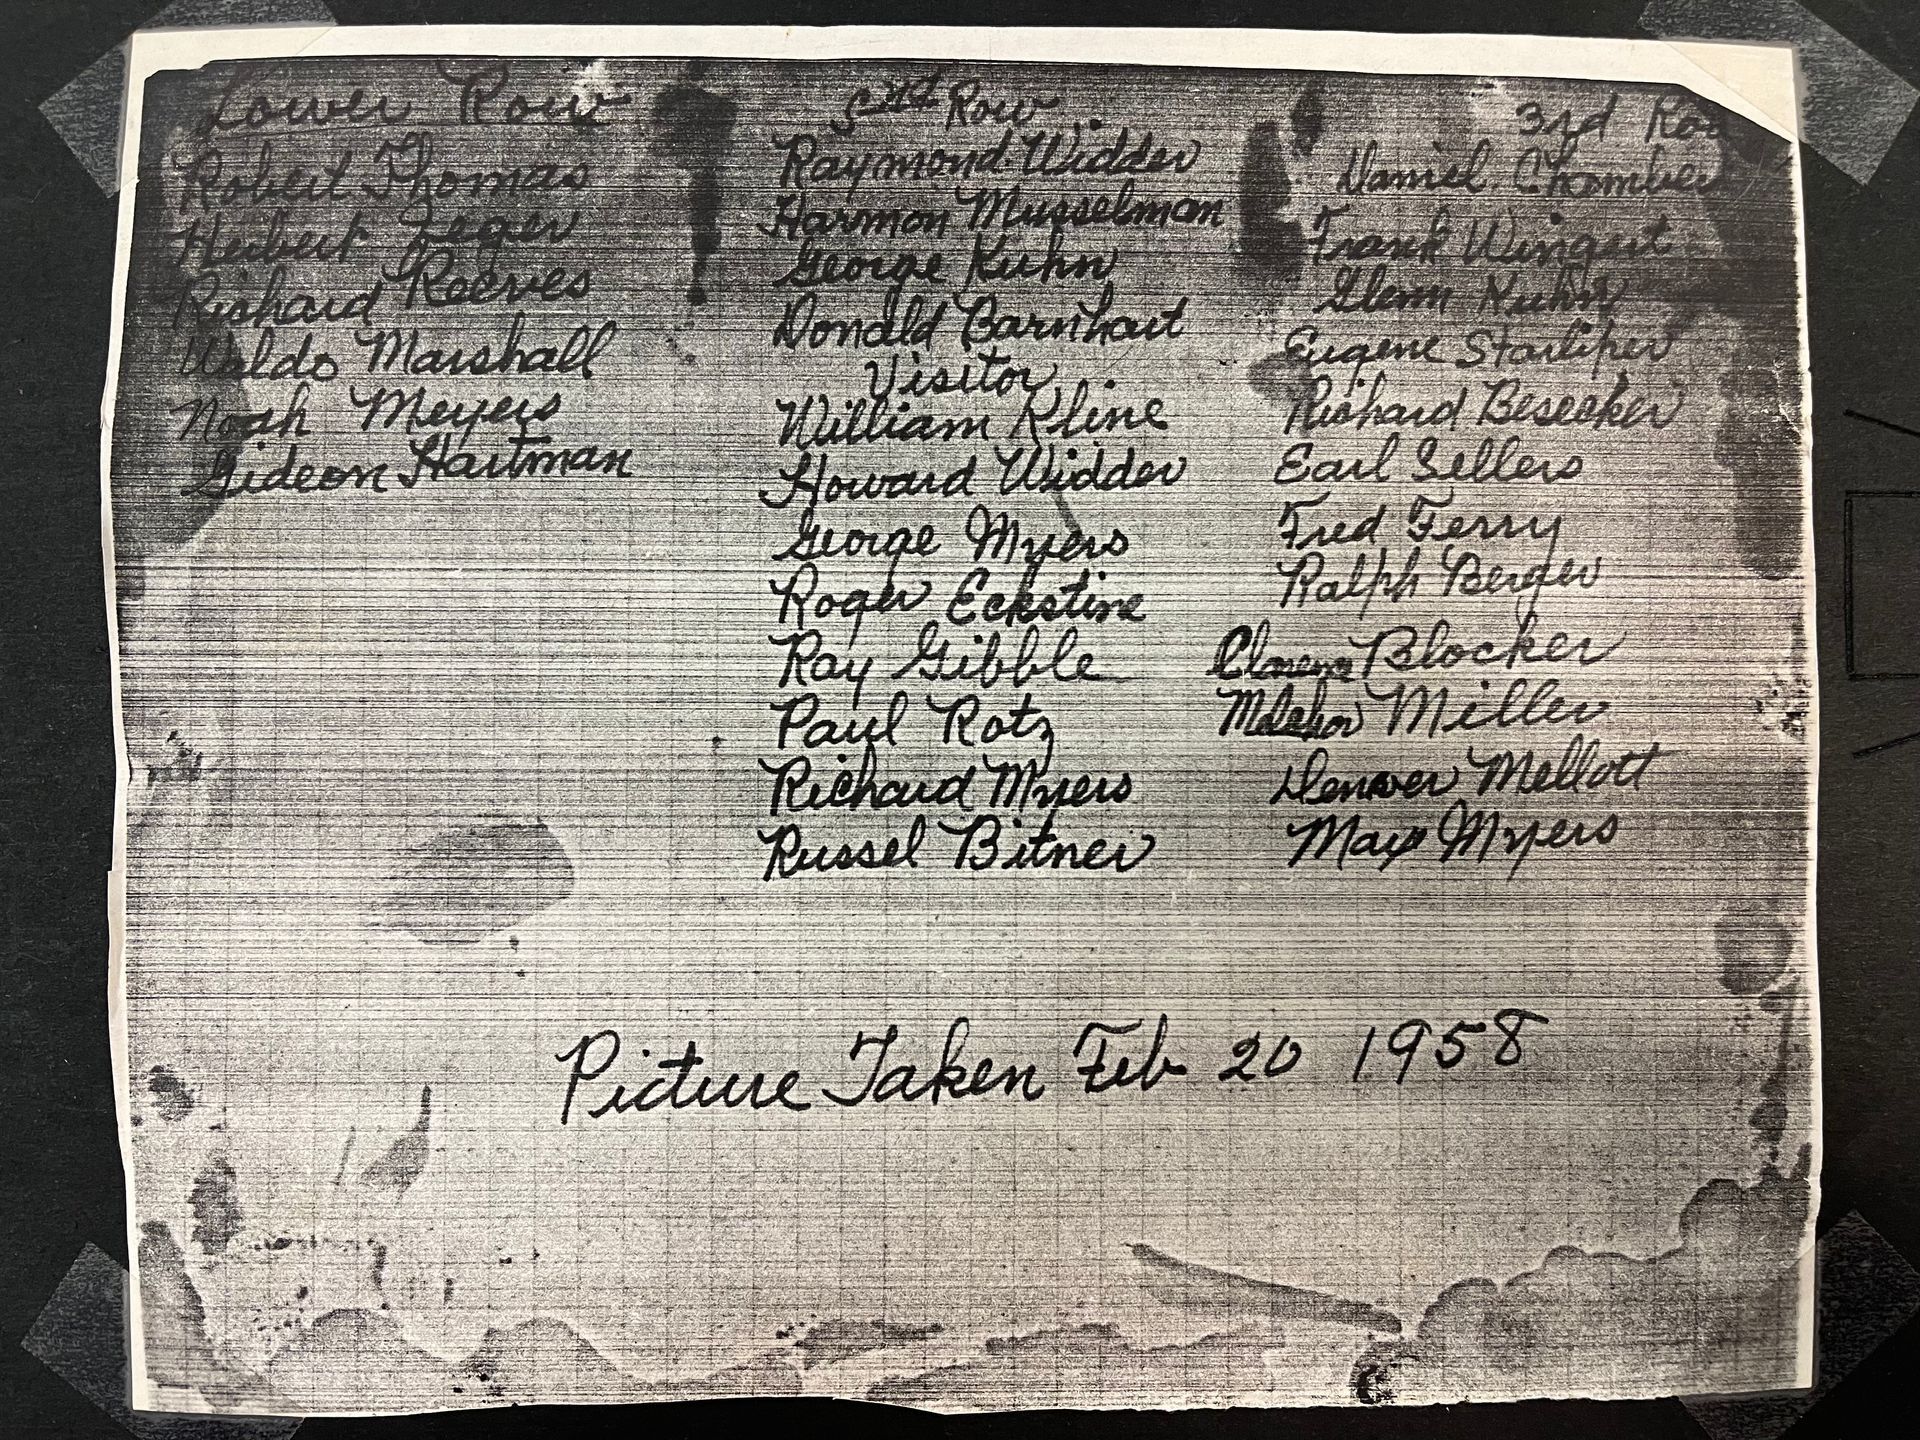 Lower Row
Robert Thomas
Herbert Zeger
Richard Reeves
Waldo Marshall
Noah Meyers
Gideon Hartman
2nd Row
Raymond Widder
Harmon Musselman
George Kuhn
Donald Barnhart
Visitor
William Kline
Howard Widder
George Myers
Roger Eckstine
Ray Gibble
Paul Rotz
Richard Myers
Russel Bitner
3rd Row
Daniel Chamber
Frank Wingert
Glenn Kuhn
Eugene Starliper
Richard Besecker
Earl Sellers
Fred Ferry
Ralph Berger
Clarence Blocker
Miller
Denver Mellott
Max Myers
Picture Taken Feb 20 1958